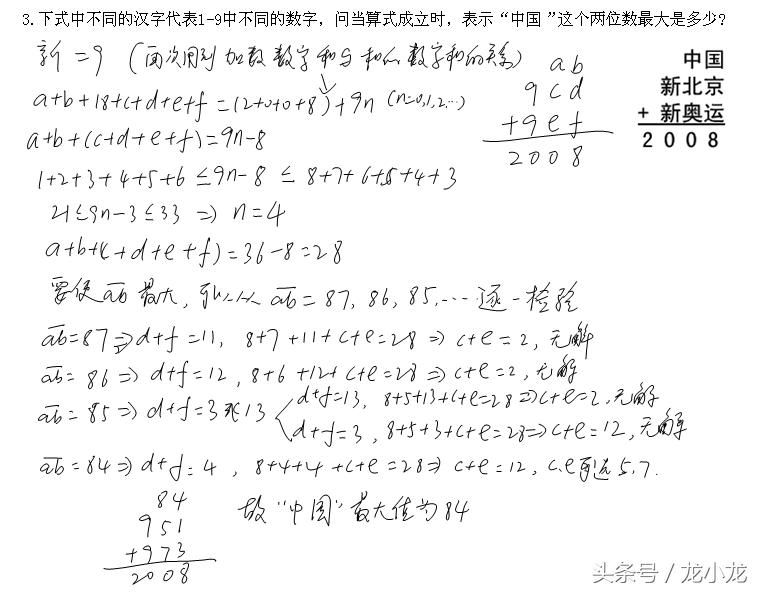 3.下式中不同的汉字代表1-9中不同的数字，问当算式成立时，表示“中国 ”这个两位数最大是多少?
新=9 (再次用到加数数字和与和的数字和的关系)
a+b+18+c+d+e+f=(2+0+0+8)+9n (n=0,1,2,…)
a+b+(c+d+e+f)=9n-8
1+2+3+4+5+6≤9n-8≤8+7+6+5+4+3
21≤9n-3≤33 ⇒ n=4
a+b+(c+d+e+f)=36-8=28
要使ab最大，所以从 ab=87, 86, 85,…逐一检验
ab=87⇒d+f=11, 8+7+11+c+e=28⇒c+e=2,无解
ab=86⇒d+f=12, 8+6+12+c+e=28⇒c+e=2,无解
ab=85⇒d+f=3或13
d+f=13, 8+5+13+c+e=28⇒c+e=2,无解
d+f=3, 8+5+3+c+e=28⇒c+e=12,无解
ab=84⇒d+f=4, 8+4+4+c+e=28⇒c+e=12, c.e可选5,7.
84
951
+973
2008
故“中国”最大值为84
ab
9cd
+9ef
2008
中国
新北京
+ 新奥运
2 0 0 8
头条号／龙小龙